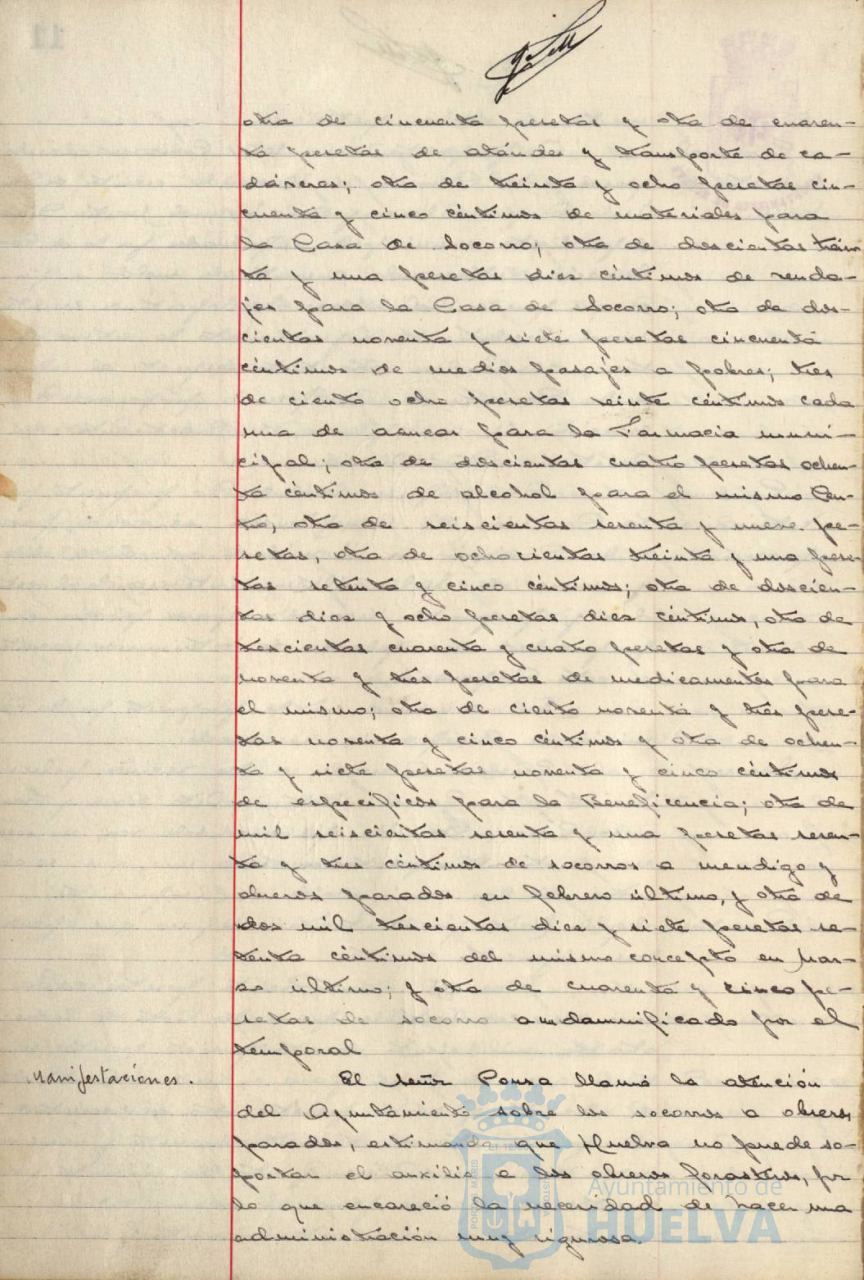 otra de cincuenta pesetas y otra de cuaren-
ta pesetas de ataúdes y transporte de ca-
dáveres; otra de treinta y ocho pesetas cin-
cuenta y cinco céntimos de materiales para
la Casa de Socorro; otra de doscientas trein-
ta y una pesetas diez céntimos de venda-
jes para la Casa de Socorro; otra de dos-
cientas noventa y siete pesetas cincuenta
céntimos de medios pasajes a pobres; tres
de ciento ocho pesetas veinte céntimos cada
una de azucar para la Farmacia muni-
cipal; otra de doscientas cuatro pesetas ochen-
ta céntimos de alcohol para el mismo Cen-
tro, otra de seiscientas sesenta y nueve pe-
setas, otra de ochocientas treinta y una pese-
tas setenta y cinco céntimos; otra de doscien-
tas diez y ocho pesetas diez céntimos, otra de
trescientas cuarenta y cuatro pesetas y otra de
noventa y tres pesetas de medicamentos para
el mismo; otra de ciento noventa y tres pese-
tas noventa y cinco céntimos y otra de ochen-
ta y siete pesetas noventa y cinco céntimos
de específicos para la Beneficencia; otra de
mil seiscientas sesenta y una pesetas sesen-
ta y tres céntimos de socorros a mendigo y
obreros parados en febrero último, y otra de
dos mil trescientas diez y siete pesetas se-
tenta céntimos del mismo concepto en Mar-
zo último; y otra de cuarenta y cinco pe-
setas de socorro a un damnificado por el
temporal
Manifestaciones. El señor Ponsa llamó la atención
del Ayuntamiento sobre los socorros a obreros
parados, estimando que Huelva no puede so-
portar el auxilio a los obreros forasteros, por
lo que encareció la necesidad de hacer una
administración muy rigurosa.
Ayuntamiento de
HUELVA